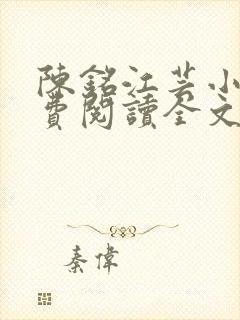 陳銘江芸小
費閱讀全文
秦偉